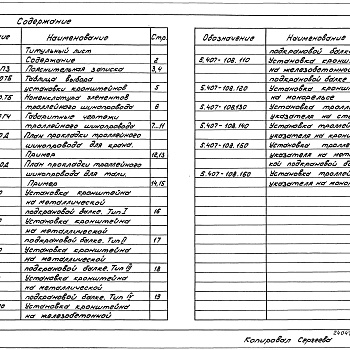 Содержание
Наименование Стр.
Титульный лист
Содержание 2
ПЗ Пояснительная записка 3,4
ТБ Таблица выбора
установки кронштейнов 5
ТБ Номенклатура элементов
троллейного шинопровода 6
ГЧ Габаритные чертежи
троллейного шинопровода 7...11
Д План прокладки троллейного
шинопровода для крана.
Пример 12,13
Д План прокладки троллейного
шинопровода для тали.
Пример 14,15
Установка кронштейна
на металлической
подкрановой балке. Тип I 16
Установка кронштейна
на металлической
подкрановой балке. Тип II 17
Установка кронштейна
на металлической
подкрановой балке. Тип III 18
Установка кронштейна
на металлической
подкрановой балке. Тип IV 19
Установка кронштейна
на железобетонной
Обозначение Наименование
подкрановой балке
5.407-108.110 Установка кронш
на железобетонной
подкрановой балке
5.407-108.120 Установка кронш
на монорельсе
5.407-108.130 Установка тролле
указателя на ст
5.407-108.140 Установка тролле
указателя на кро
5.407-108.150 Установка тролле
указателя на мет
кой подкрановой ба
5.407-108.160 Установка тролле
указателя на мон
Копировал Сергеева
2404